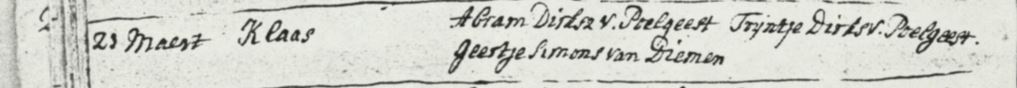 23 Maert Klaas Abram Dirksz v. Poelgeest Trijntje Dirks v. Poelgeest.
Geertje Simons van Diemen